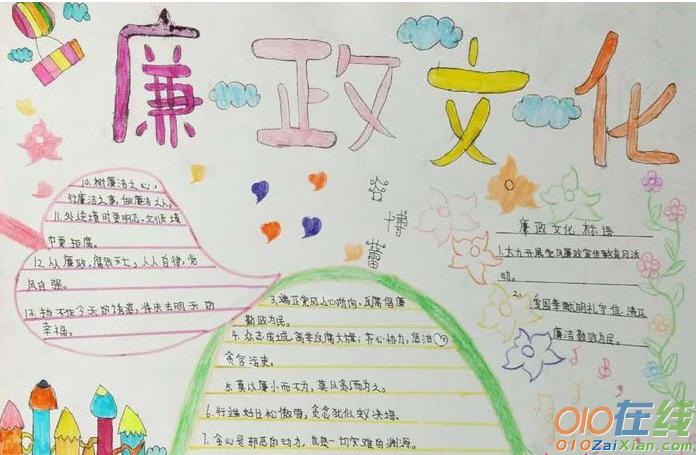 廉政文化
谷博蕾
10、树廉洁之心，
行廉洁之事，做廉洁之人。
11、处逆境时更明志，
中更拒腐。
12、从廉政，腐败灭亡，人人自律，
自强。
13、抵不住今天的诱惑，将失去明天的
幸福。
3、端正党风人心所向，反腐倡廉
勤政为民。
4、众志成城，高举反腐大旗；齐心协力，惩治
贪官污吏。
5、莫以廉小而不为，莫以贪小而为之。
6、行端好比松傲雪，贪贪犹似蚁决堤。
7、贪心是邪恶的动力，也是一切灾难的渊源。
廉政文化标语
1、大力开展党风廉政宣传教育月活
动。
2、爱国奉献明礼守信，清正
廉洁勤政为民。
010在线
010ZaiXian.com